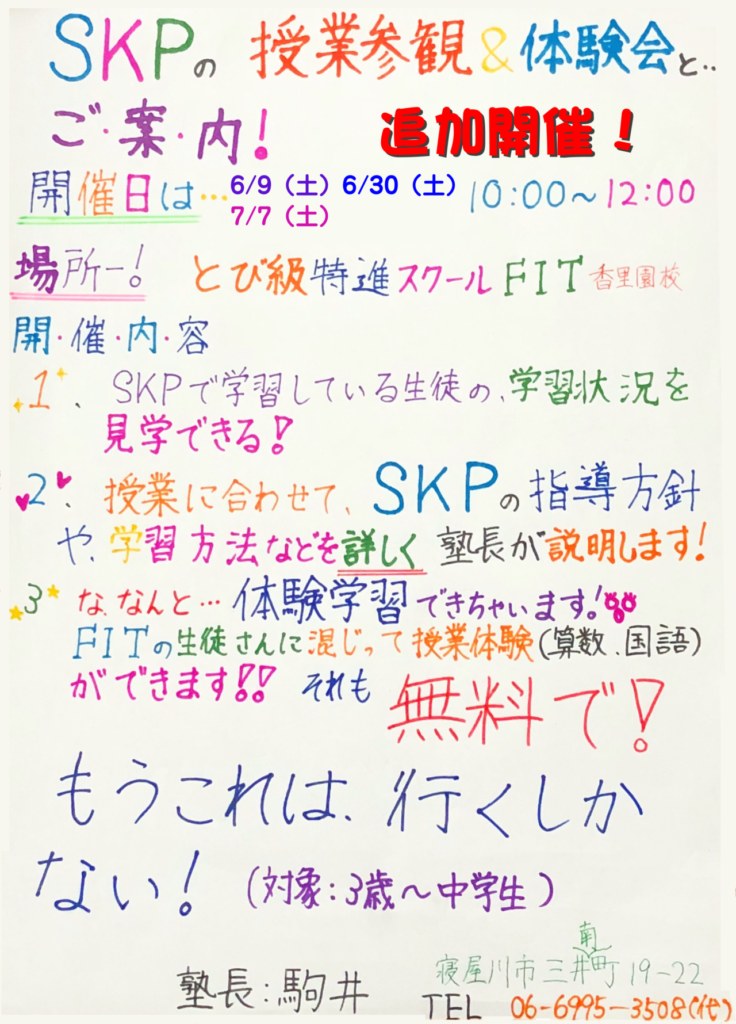 SKPの 授業参観&体験会と‥
ご・案・内! 追加開催!
開催日は… 6/9(土)6/30(土) 10:00~12:00
7/7(土)
場所ー! とび級特進スクールFIT香里園校
開・催・内・容
1、SKPで学習している生徒の、学習状況を
見学できる!
2、授業に合わせて、SKPの指導方針
や、学習方法などを詳しく塾長が説明します!
3 な、なんと…体験学習できちゃいます!
FITの生徒さんに混じって授業体験(算数、国語)
ができます!! それも 無料で!
もうこれは、行くしか
ない! (対象:3歳~中学生)
塾長:駒井 寝屋川市三井南町19-22
TEL 06-6995-3508(代)